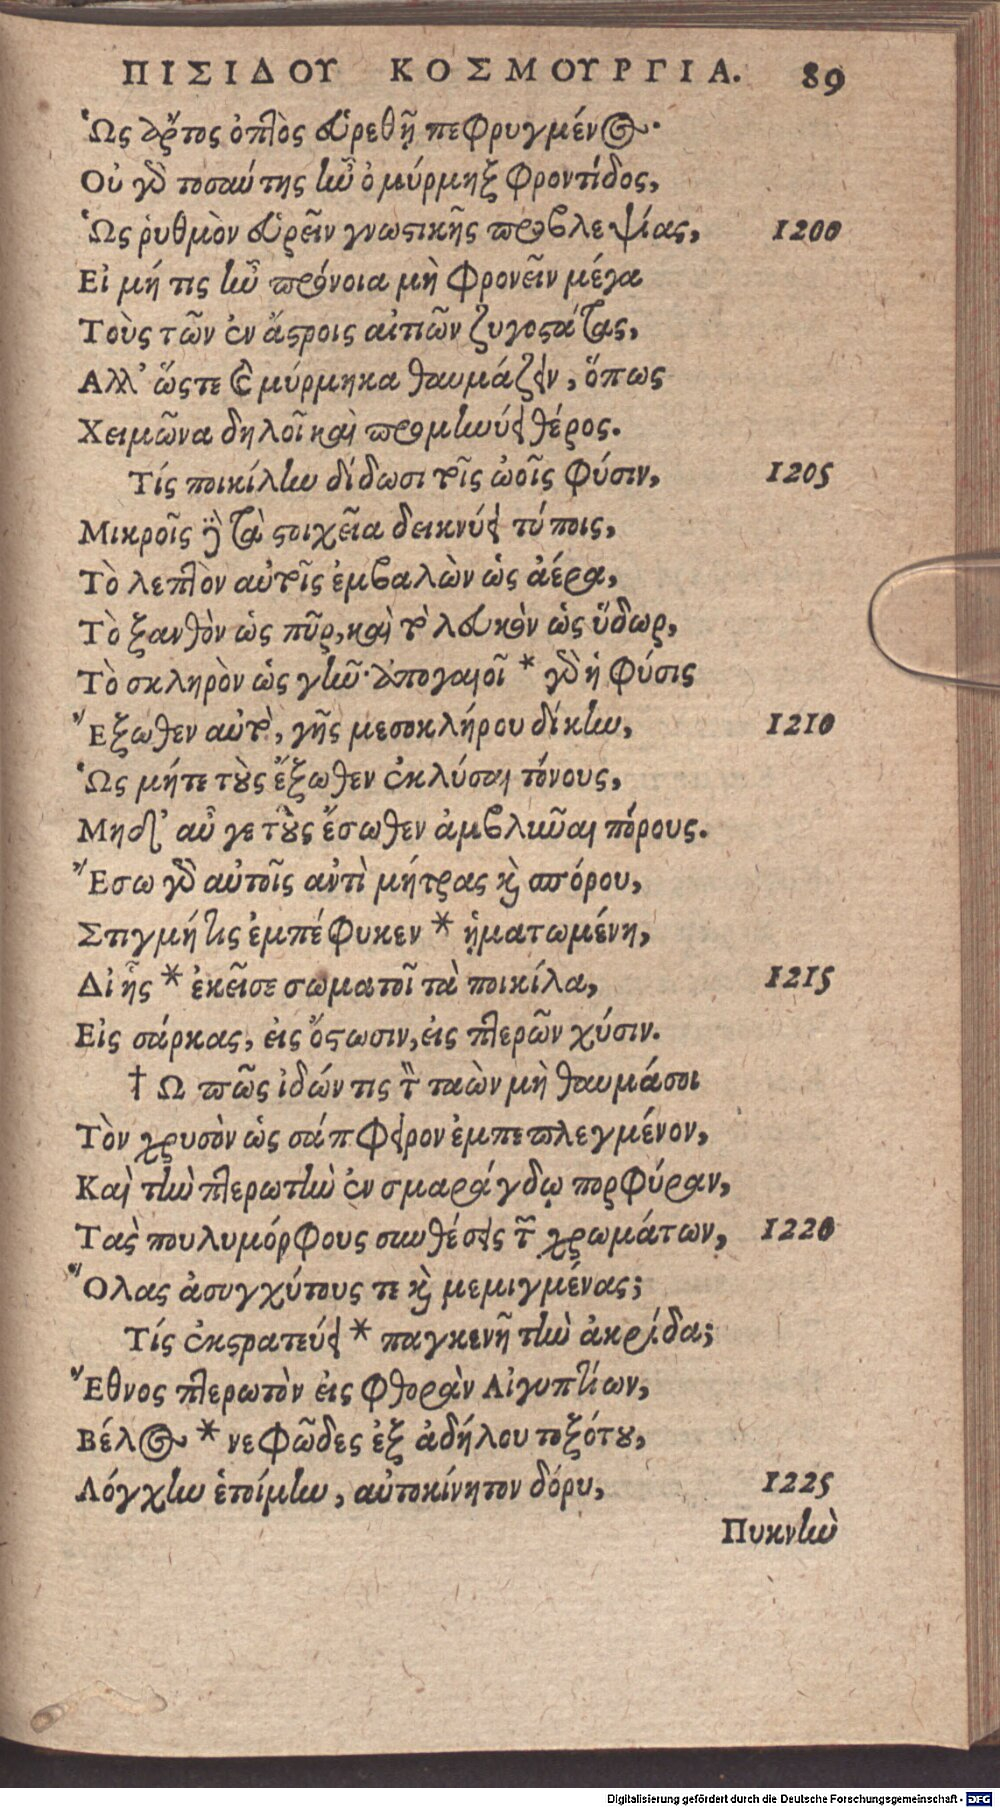 ΠΙΣΙΔΟΥ ΚΟΣΜΟΥΡΓΙΑ. 89
Ὡς ἄρτος ὀπτὸς εὑρεθῇ πεφρυγμένος.
Οὐ γὰρ τοσαύτης ἦν ὁ μύρμηξ φροντίδος,
Ὡς ῥυθμὸν εὑρεῖν γνωστικῆς προβλεψίας, 1200
Εἰ μή τις ἦν πρόνοια μὴ φρονεῖν μέγα
Τοὺς τῶν ἐν ἄστροις αἰτιῶν ζυγοστάτας,
Ἀλλ' ὥστε καὶ μύρμηκα θαυμάζειν, ὅπως
Χειμῶνα δηλοῖ καὶ προμηνύει θέρος.
Τίς ποικίλην δίδωσι τοῖς ὠοῖς φύσιν, 1205
Μικροῖς τὰ στοιχεῖα δεικνύει τύποις,
Τὸ λεπτὸν αὐτοῖς ἐμβαλὼν ὡς ἀέρα,
Τὸ ξανθὸν ὡς πῦρ, καὶ τὸ λευκὸν ὡς ὕδωρ,
Τὸ σκληρὸν ὡς γῆν· ἀπογαιοῖ * γὰρ ἡ φύσις
Ἔξωθεν αὐτὸ, γῆς μεσοκλήρου δίκην, 1210
Ὡς μήτε τοὺς ἔξωθεν ἐκλύσαι τόνους,
Μηδ' αὖ γε τοὺς ἔσωθεν ἀμβλῦναι πόρους.
Ἔσω γὰρ αὐτοῖς αντὶ μήτρας καὶ σπόρου,
Στιγμή τις ἐμπέφυκεν * ᾑματωμένη,
Δι ἧς * ἐκεῖσε σωματοῖ τὰ ποικίλα, 1215
Εἰς σάρκας, εἰς ὄστωσιν, εἰς πτερῶν χύσιν.
† Ω πῶς ἰδών τις τὸν ταὼν μὴ θαυμάσοι
Τὸν χρυσὸν ὡς σάπφειρον ἐμπεπλεγμένον,
Καὶ τὴν πτερωτὴν ἐν σμαράγδῳ πορφύραν,
Τὰς πουλυμόρφους συνθέσεις τῶν χρωμάτων, 1220
Ὅλας ἀσυγχύτους τε καὶ μεμιγμένας;
Τίς ἐκστρατεύει * παγκενῆ τὴν ἀκρίδα;
Ἔθνος πτερωτὸν εἰς φθορὰν Αἰγυπτίων,
Βέλος * νεφῶδες ἐξ ἀδήλου τοξότου,
Λόγχην ἑτοίμην, αὐτοκίνητον δόρυ, 1225
Πυκνὴν
Digitalisierung gefördert durch die Deutsche Forschungsgemeinschaft - DFG